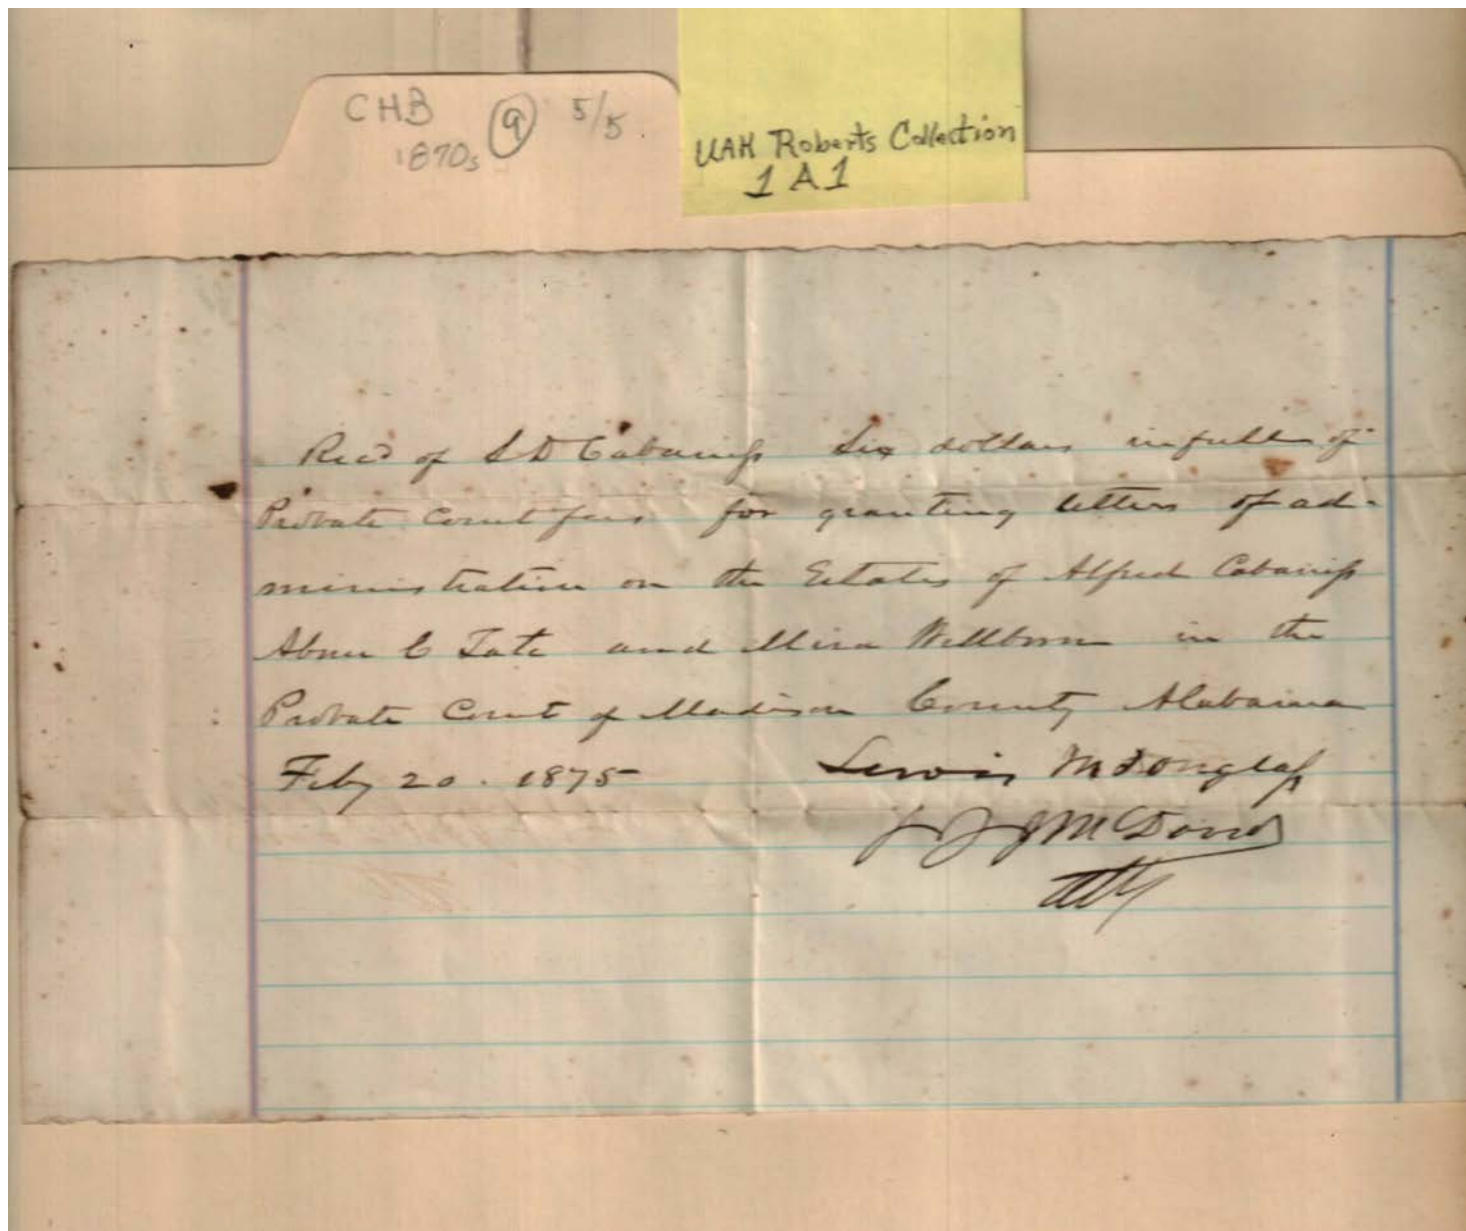 CHB 9 5/5
1870s
UAH Roberts Collection
1 A 1
Recd of S D Cabaniss Six dollars in full of
Probate Court fees for granting letters of ad-
ministration on the Estates of Alfred Cabaniss
Abner C Tate and Mira Wellborn in the
Probate Court of Madison County Alabama
Feby 20. 1875 Lewis M Douglass
JM
Atty